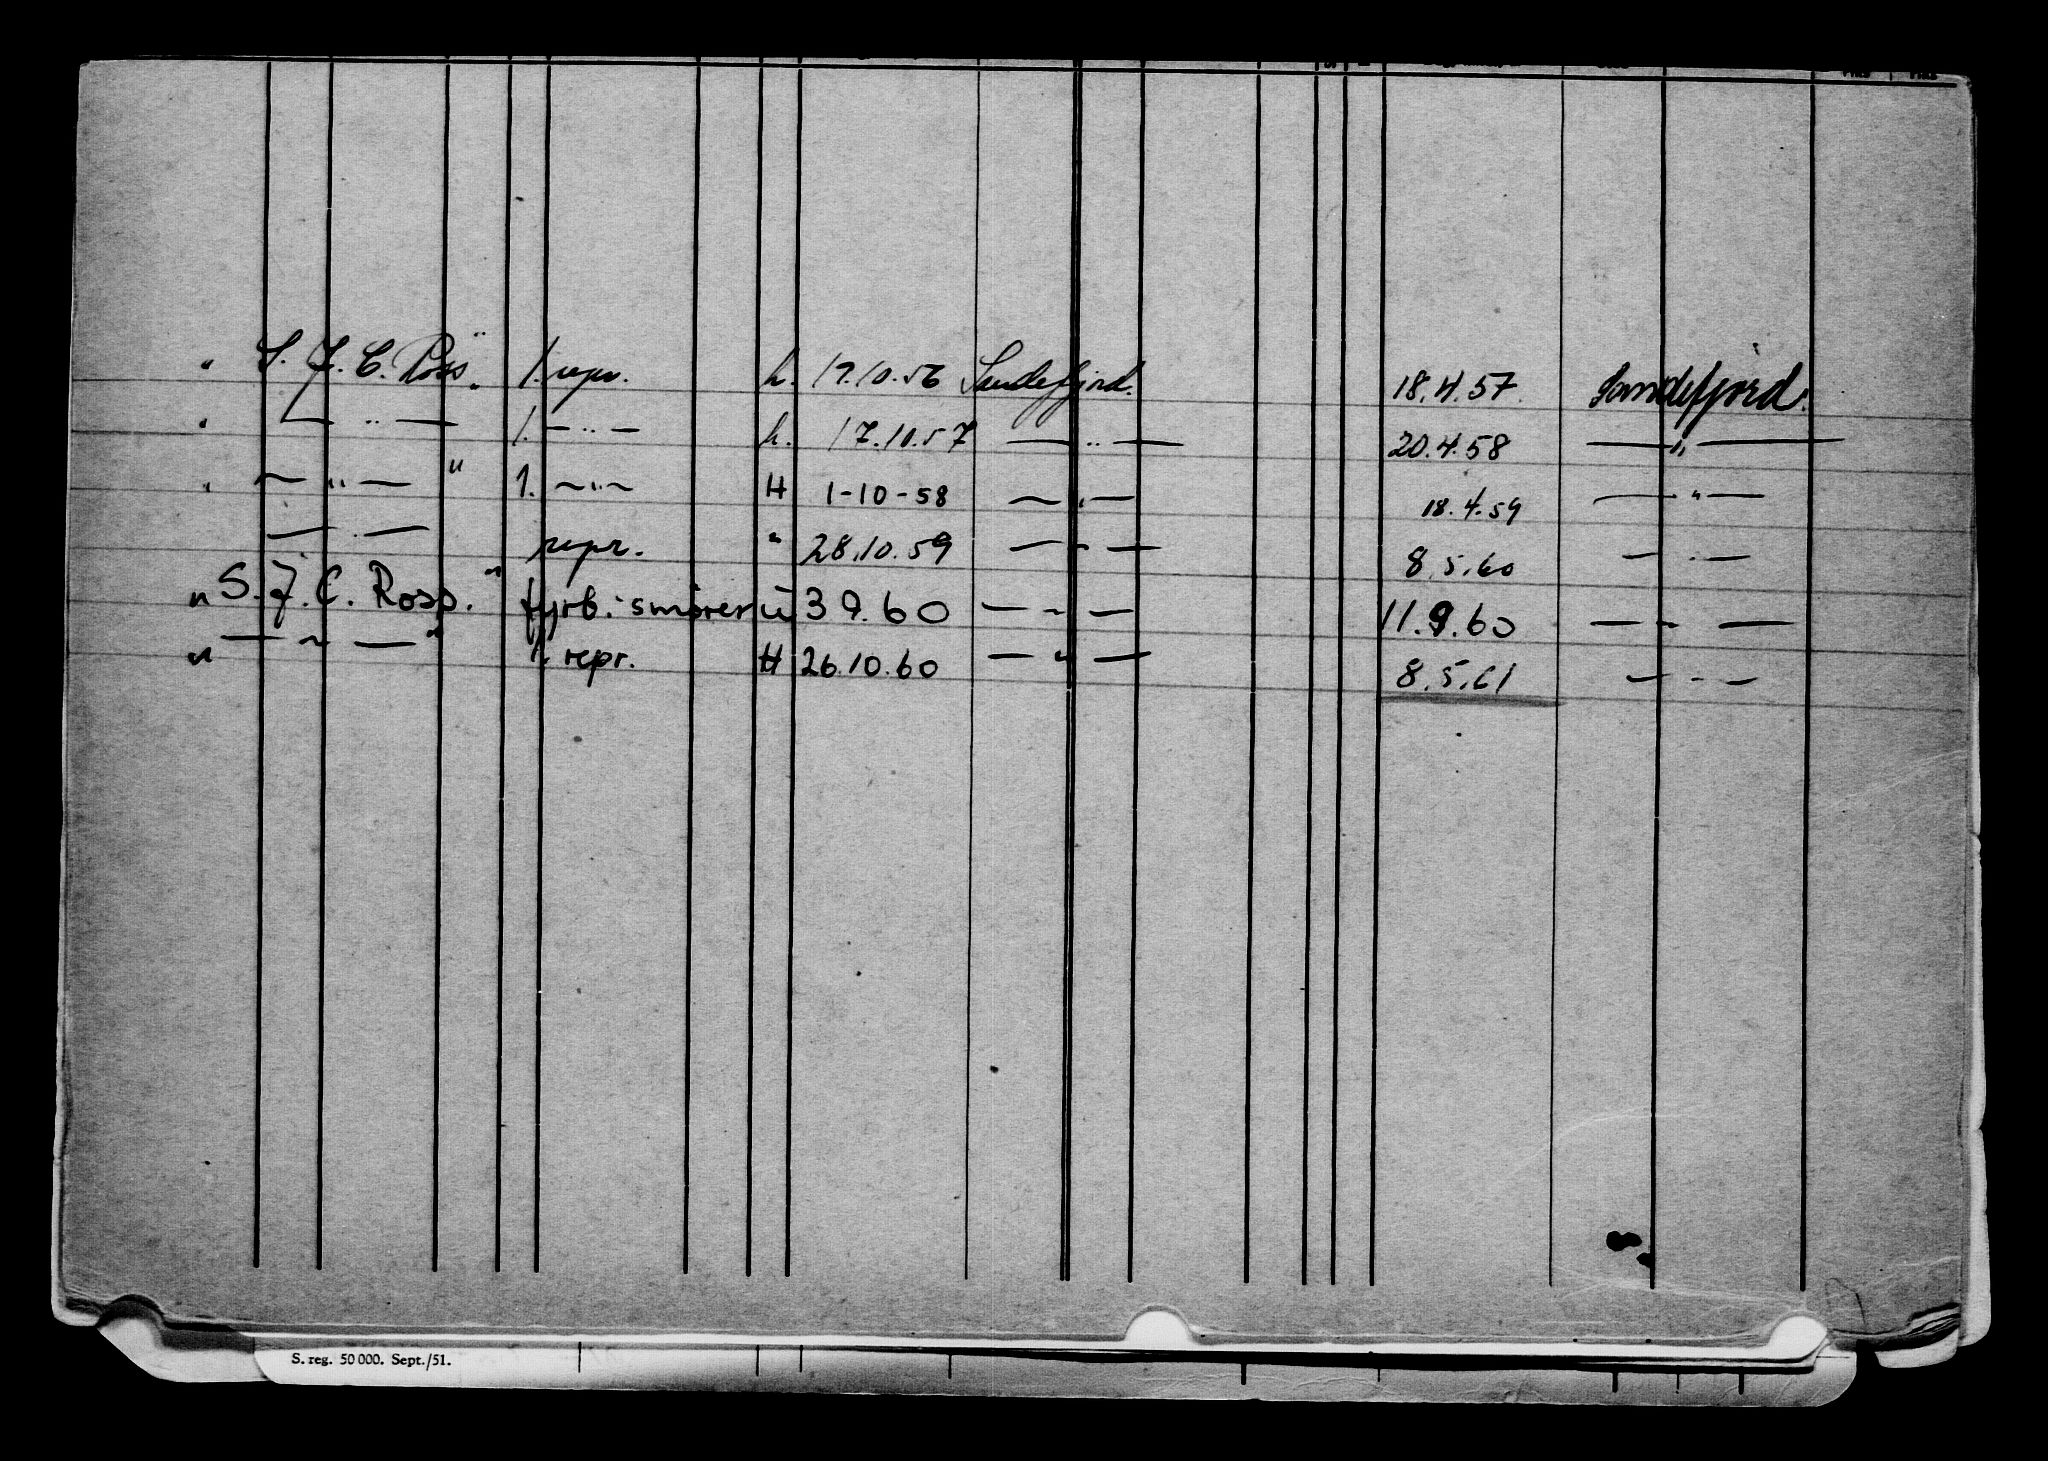 " S. J. C. Ross." 1. repr. h. 17.10.56 Sandefjord. 18.4.57. Sandefjord.
" — " — 1. — " — h. 17.10.57 — " — 20.4.58 — " —
" — " — " 1. — " — H 1-10-58 — " — 18.4.59 — " —
— " — repr. " 28.10.59 — " — 8.5.60 — " —
" S. J. C. Ross." fyrb.-smører u 3 9.60 — " — 11.9.60 — " —
" — " — " 1. repr. H 26.10.60 — " — 8.5.61 — " —
S. reg. 50 000. Sept./51.